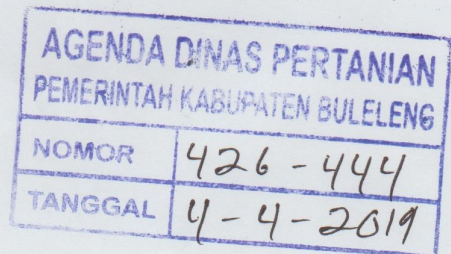 AGENDA DINAS PERTANIAN
PEMERINTAH KABUPATEN BULELENG
NOMOR 426-444
TANGGAL 4-4-2019